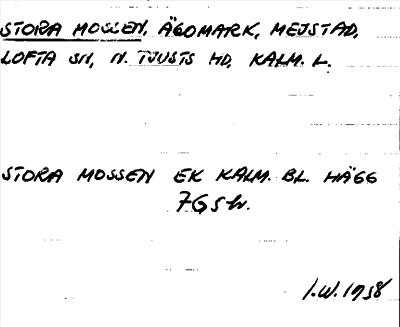 STORA MOSSEN, ÄGOMARK, MEJSTAD,
LOFTA SN, N. TJUSTS HD, KALM. L.
STORA MOSSEN EK KALM. BL. HÄGG
7G5h.
I.W. 1958